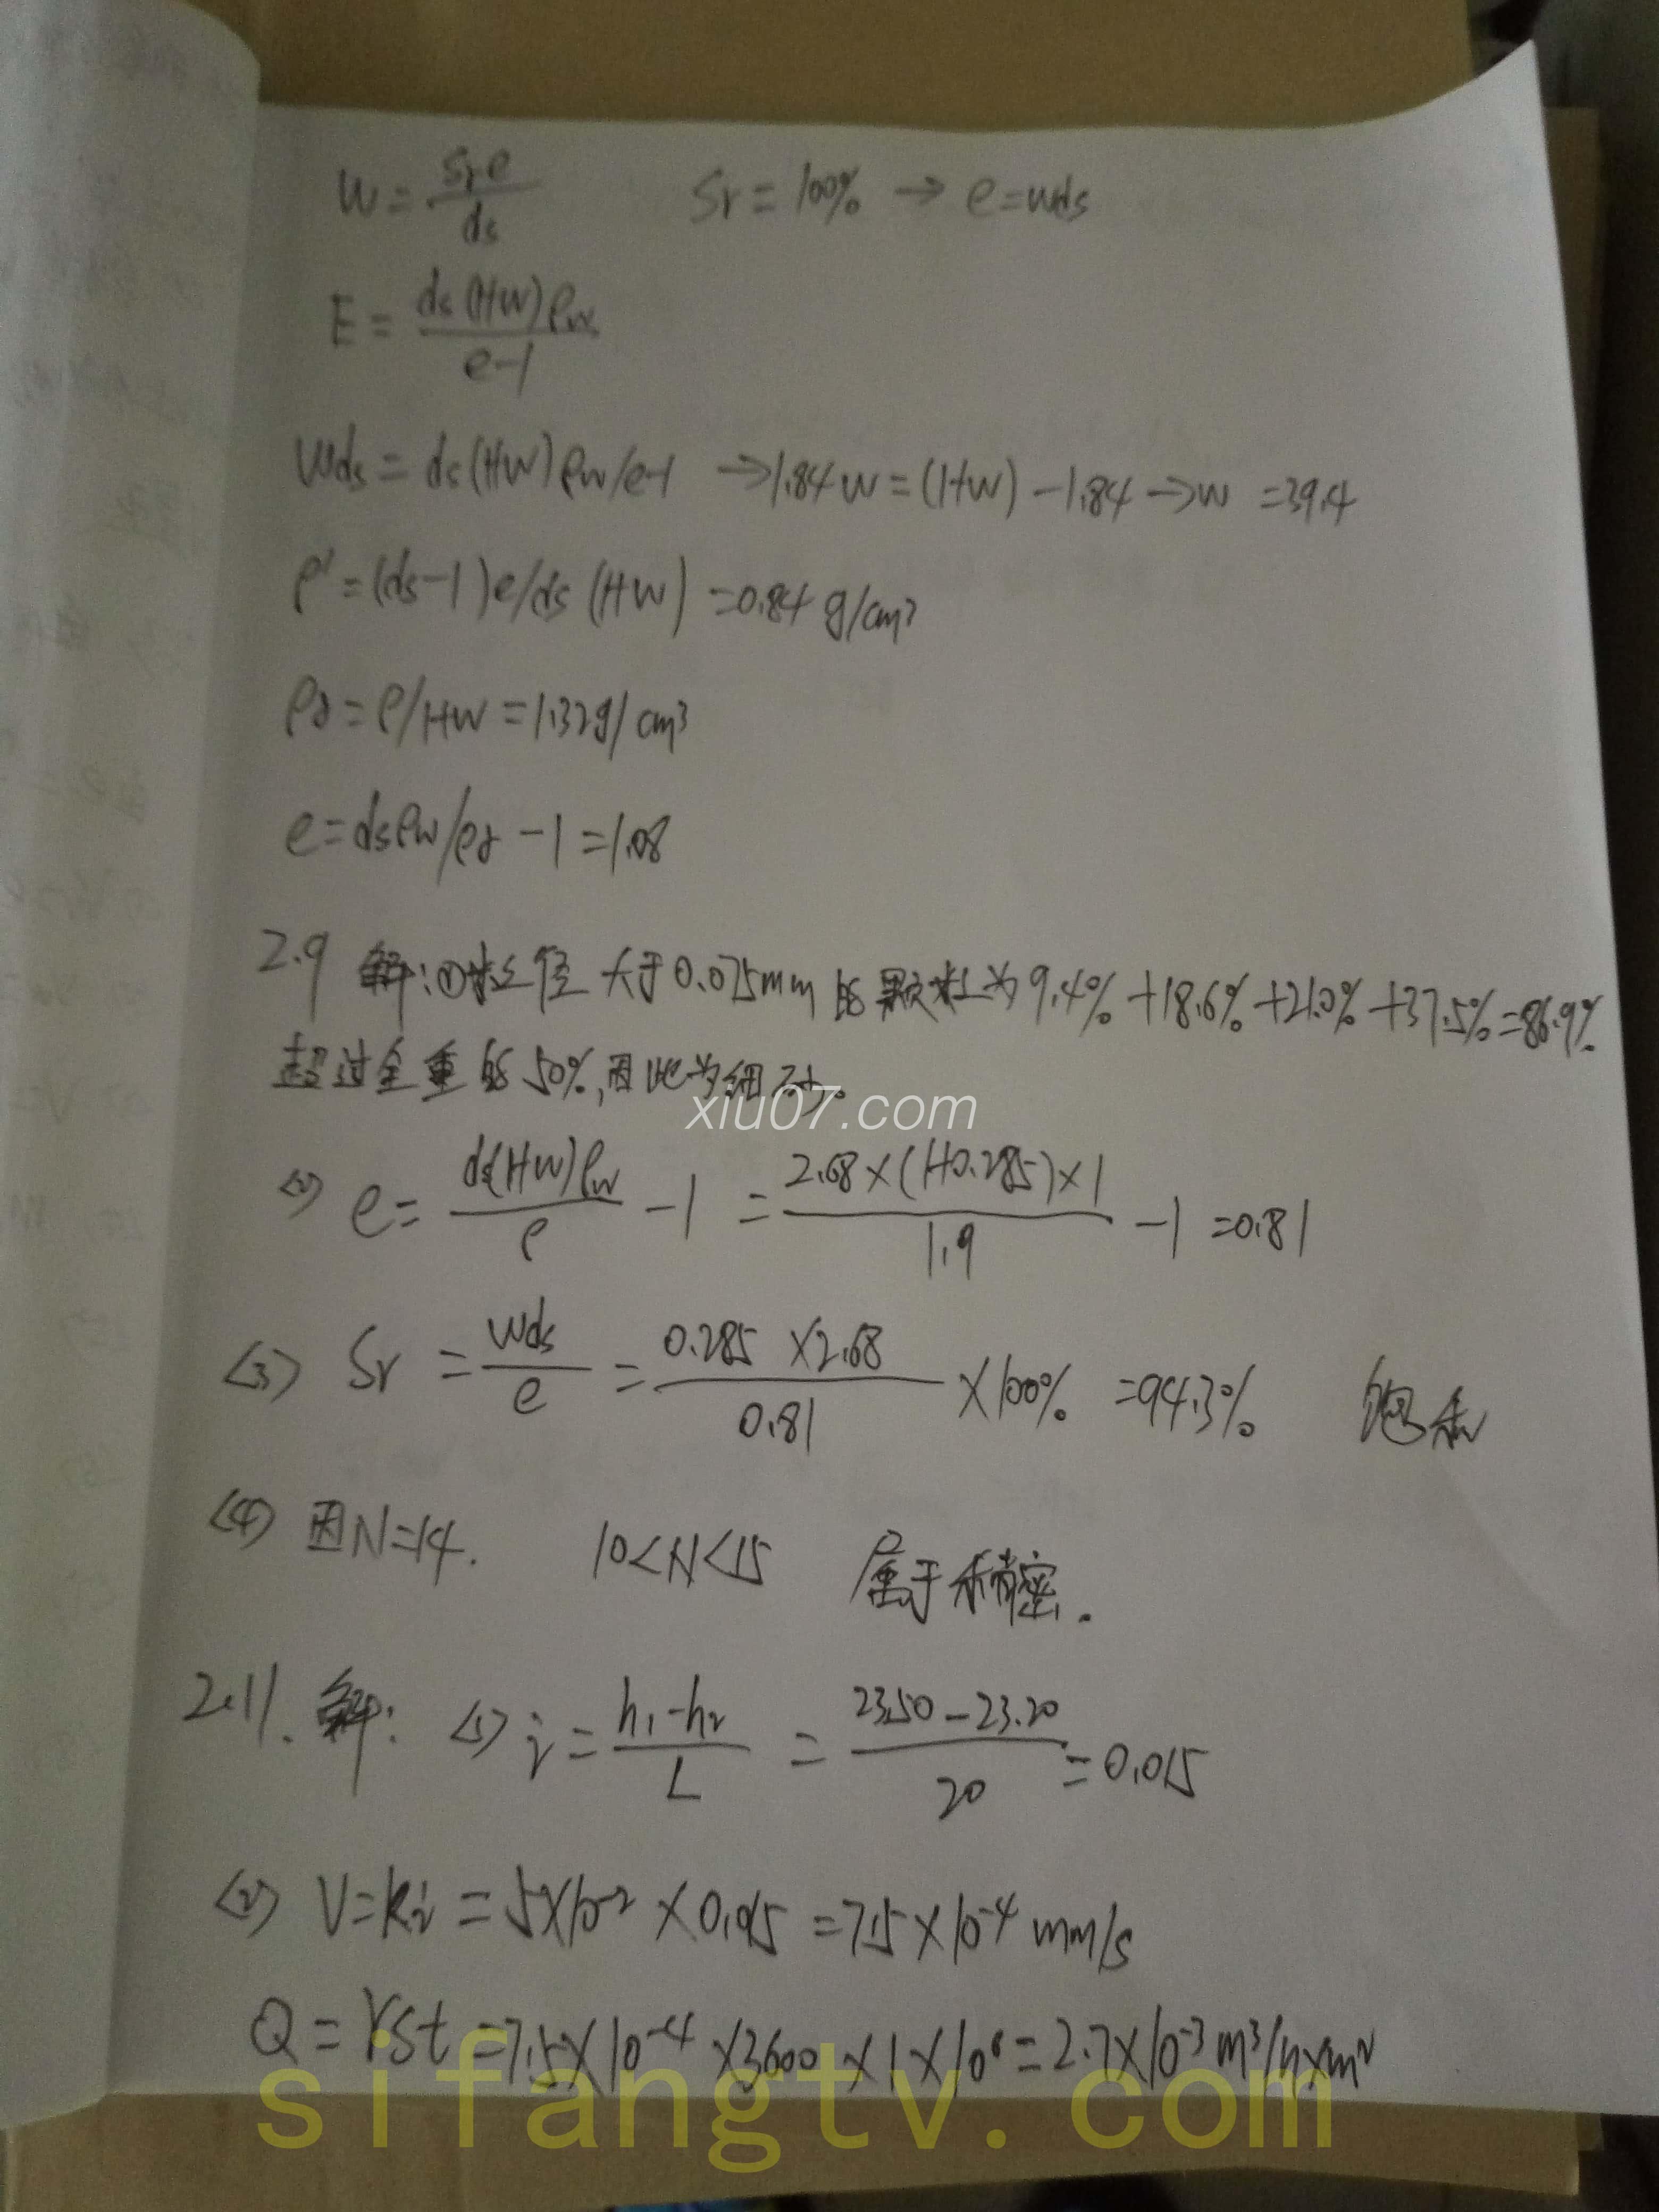 w = Sre/ds    Sr = 100% → e = wds
E = ds(1+w)ρw/e-1
wds = ds(1+w)ρw/e-1 → 1.84w = (1+w) - 1.84 → w = 39.4
ρ' = (ds-1)e/ds(1+w) = 0.84 g/cm³
ρd = ρ/1+w = 1.32g/cm³
e = dsρw/ρd - 1 = 1.08
2.9 解:①粒径大于0.075mm的颗粒为9.4%+18.6%+21.0%+37.5%=86.9%
超过全重的50%,因此为细砂。
xiu07.com
<2> e = ds(1+w)ρw/ρ - 1 = 2.68×(1+0.285)×1/1.9 - 1 = 0.81
<3> Sr = wds/e = 0.285×2.68/0.81 ×100% = 94.3%    饱和
<4> 因N=14.    10<N<15    属于稍密.
2.11. 解: <1> i = h₁-h₂/L = 23.50-23.20/20 = 0.015
<2> V=ki = 5×10⁻² × 0.015 = 7.5×10⁻⁴ mm/s
Q = VSt = 7.5×10⁻⁴ ×3600 ×1×10⁶ = 2.7×10⁻³ m³/h×m²
sifangtv.com